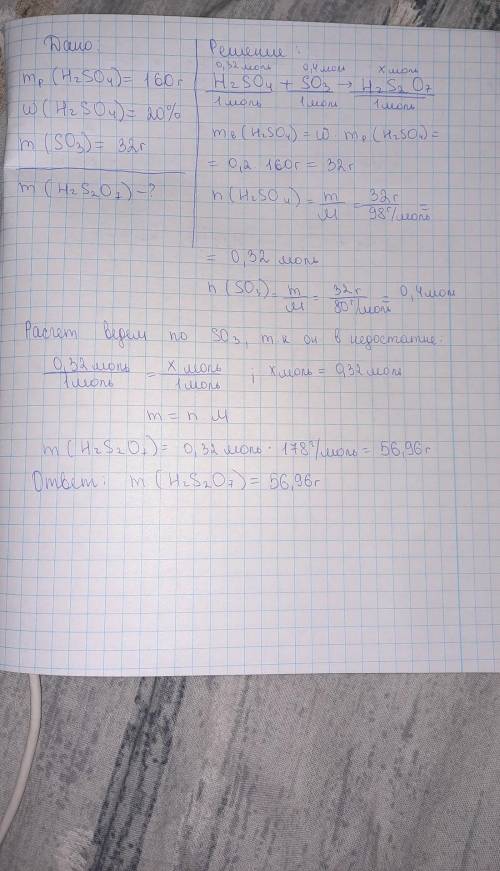 Дано:
mр (H₂SO₄) = 160г
ω (H₂SO₄) = 20%
m (SO₃) = 32г
m (H₂S₂O₇) - ?
Решение:
0,32 моль 0,4 мол x моль
H₂SO₄ + SO₃ → H₂S₂O₇
1 моль 1 моль 1 моль
mв (H₂SO₄) = ω · mр (H₂SO₄) =
= 0,2 · 160г = 32г
n (H₂SO₄) = m/M = 32г/98г/моль =
= 0,32 моль
n (SO₃) = m/M = 32г/80г/моль = 0,4 мол
Расчет ведем по SO₃, т.к он в недостатке:
0,32 моль/1 моль = x моль/1 моль ; x моль = 0,32 мол
m = n · M
m (H₂S₂O₇) = 0,32 моль · 178г/моль = 56,96г
Ответ: m (H₂S₂O₇) = 56,96г